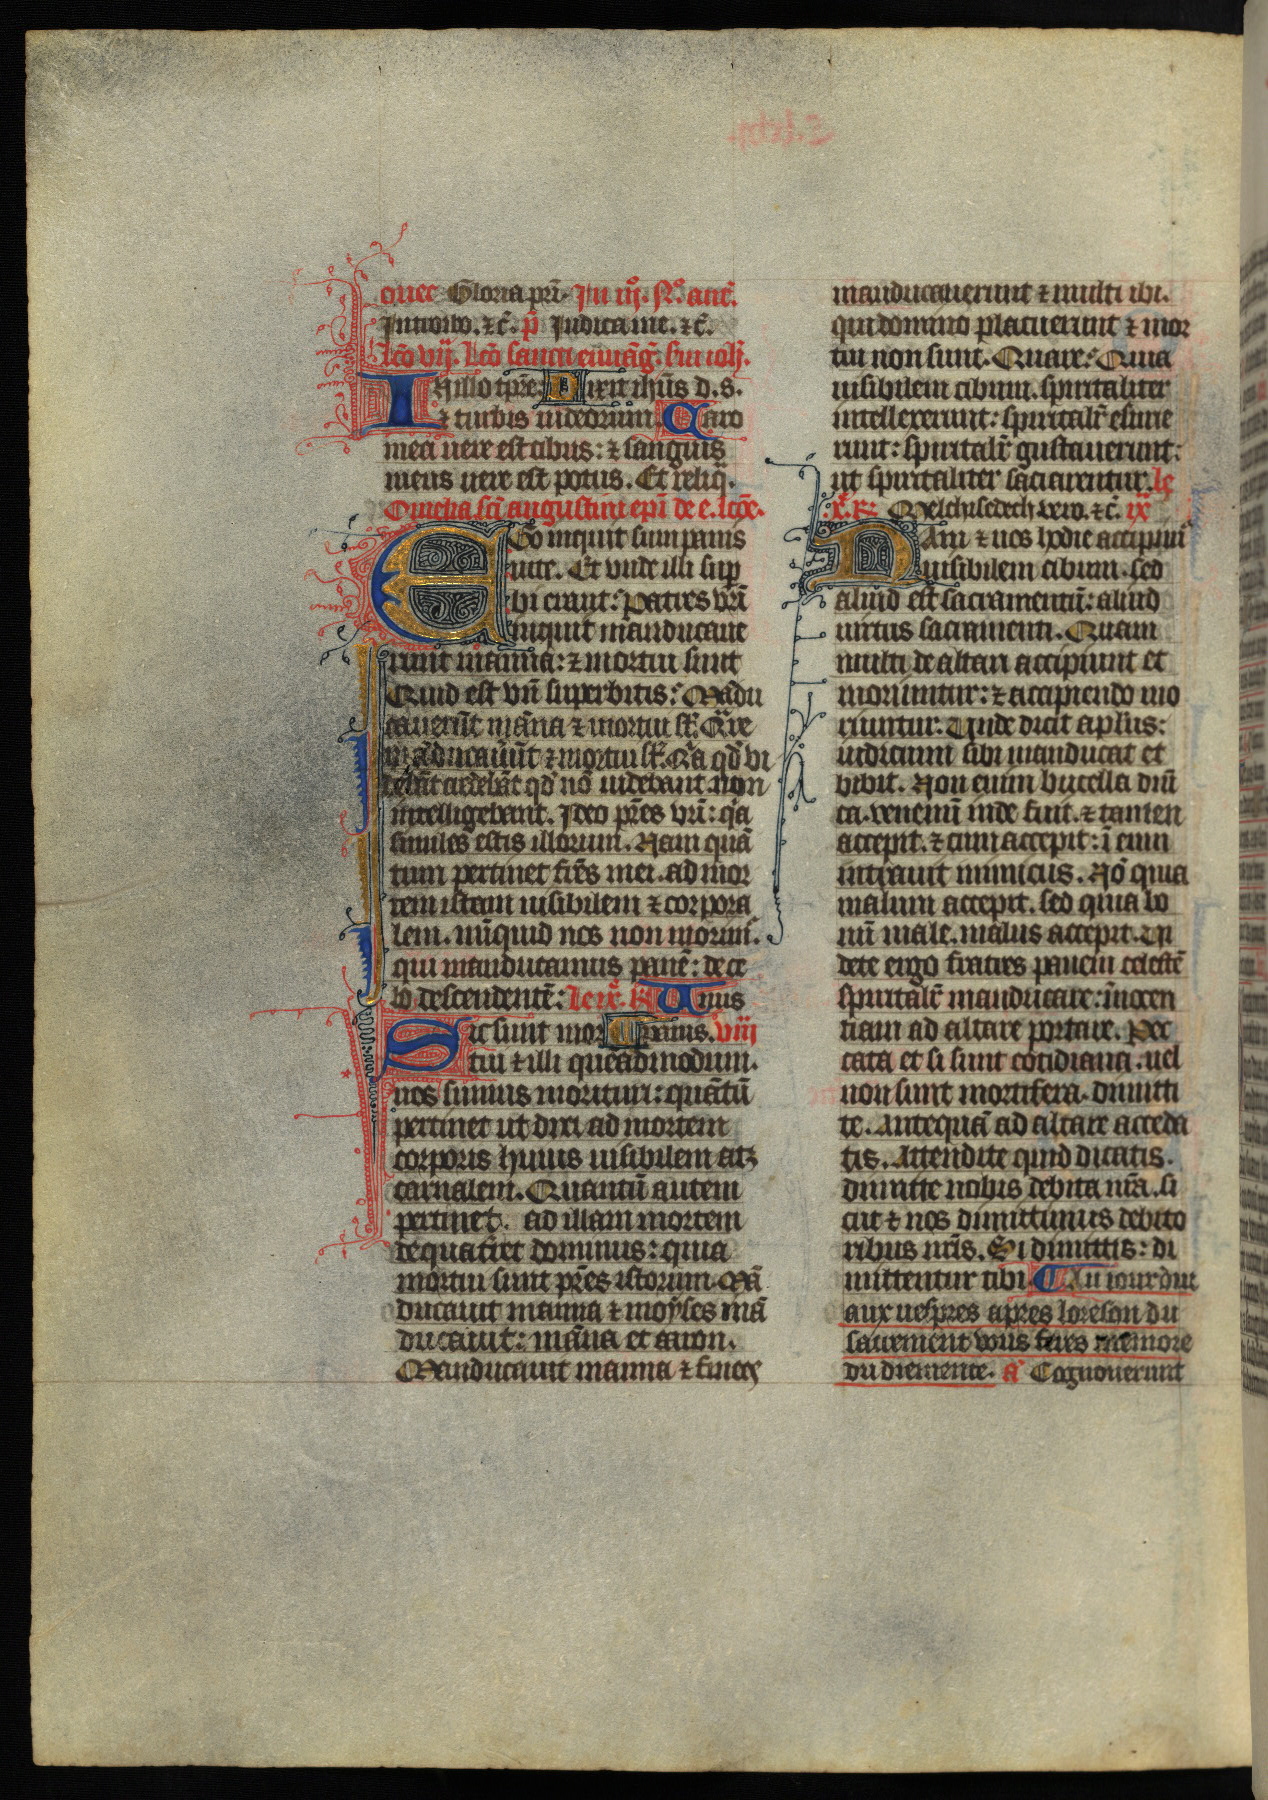 ouec Gloria pri. In iij. No. ant.
Introibo. ⁊ c̃. p̃ Iudica me. ⁊ c̃.
Lcō vij. Lcō sancti euuāg̃. sm̄ ioh̄.
IN illo tp̃re Dixit ih̄us d. s.
⁊ turbis iudeorum Caro
mea uere est cibus: ⁊ sanguis
meus uere est potus. Et reliq̄.
Omelia sc̄i augustini ep̄i de e. lcōe.
Ego inquit sum panis
uite. Et unde illi sup
bi erant: Patres vr̄i
inquit manducaue
runt manna: ⁊ mortui sunt
Quid est vn̄ superbitis: Mādu
cauerūt māna ⁊ mortui st̄. Q̄re
māducauūt ⁊ mortui st̄. Q̄a qd̄ vi
debāt credebāt qd̄ nō uidebant non
intelligebant. Ideo p̄res vr̄i: q̄a
similes estis illorum. Nam quā
tum pertinet fr̄es mei. ad mor
tem istam uisibilem ⁊ corpora
lem. nūquid nos non morim̄.
qui manducamus panē: de ce
lo descendentē: le ix. R̄ Unus
Sic sunt mor panis. viij
tui ⁊ illi queadmodum.
nos sumus morituri: quātū
pertinet ut dixi ad mortem
corporis huius uisibilem atꝫ
carnalem. Quantū autem
pertinet. ad illam mortem
de qua t̄ret dominus: quia
mortui sunt p̄res istorum. Mā
ducauit manna ⁊ moyses mā
ducauit: māna et aaron.
Manducauit manna ⁊ finees
manducauerunt ⁊ multi ibi.
qui domino placuerunt ⁊ mor
tui non sunt. Quare: Quia
uisibilem cibum. spiritaliter
intellexerunt: spiritalr̄ esurie
runt: spiritalr̄ gustauerunt:
ut spiritaliter saciarentur. le
.x. R̄. Melchisedech vero. ⁊ c̄. ix
Nam ⁊ nos hodie accipim̄
uisibilem cibum. sed
aliud est sacramentū: aliud
uirtus sacramenti. Quam
multi de altari accipiunt et
moriuntur: ⁊ accipiendo mo
riuntur. Unde dicit aplus:
iudicium sibi manducat et
bibit. Non enim bucella dn̄i
ca. venenū inde fuit. ⁊ tamen
accepit. ⁊ cum accepit: ī eum
intrauit inimicus. Nō quia
malum accepit. sed quia bo
nū male. malus accepit. Ui
dete ergo fratres panem celestē
spiritalr̄ manducate: īnocen
tiam ad altare portate. Pec
cata et si sunt cotidiana. uel
non sunt mortifera. dimitti
te. Antequā ad altare acceda
tis. Attendite quid dicatis.
dimitte nobis debita nr̄a. si
cut ⁊ nos dimittimus debito
ribus nr̄is. Si dimittis: di
mittentur tibi Au iour du
aux uespres apres loreson du
sacrement vous feres memore
du diemence. a Cognouerunt